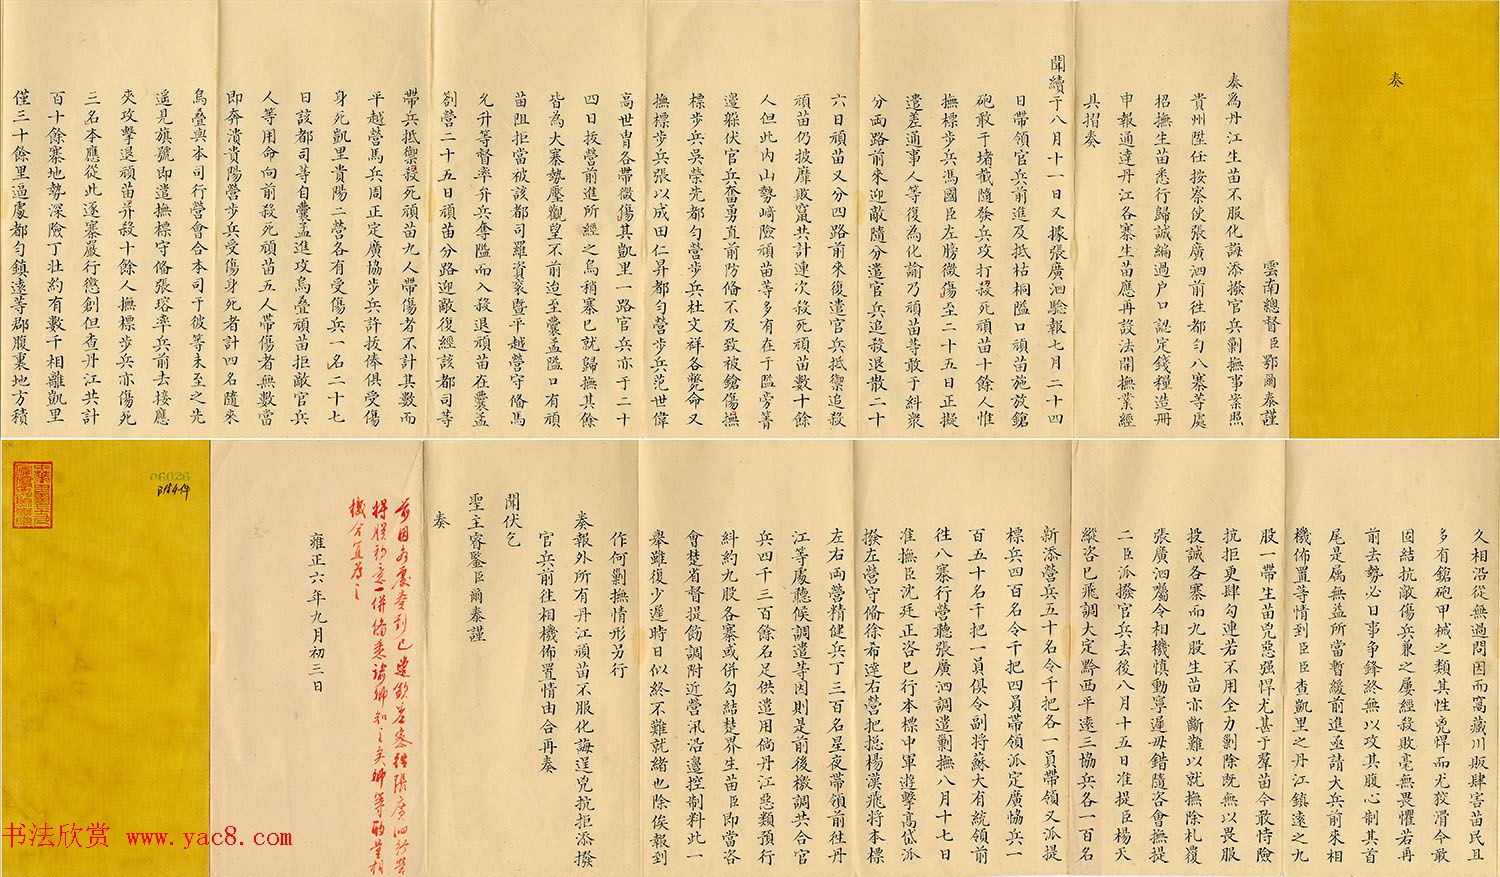 奏
雲南總督臣鄂爾泰謹
奏為丹江生苗不服化誨添撥官兵剿撫事案照
貴州陞任按察使張廣泗前往都勻八寨等處
招撫生苗悉行歸誠編過户口認定錢糧造冊
申報通達丹江各寨生苗應再設法開撫業經
具摺奏
聞續于八月十一日又據張廣泗驗報七月二十四
日帶領官兵前進及抵枯桐隘口頑苗施放鎗
砲敢于堵截隨發兵攻打殺死頑苗十餘人惟
撫標步兵馮國臣左膀微傷至二十五日正擬
遣差通事人等復為化諭乃頑苗等敢于糾衆
分兩路前來迎敵隨分遣官兵追殺退散二十
六日頑苗又分四路前來復遣官兵抵禦追殺
頑苗仍披靡敗竄共計連次殺死頑苗數十餘
人但此內山勢崎險頑苗等多有在于隘旁箐
邊躲伏官兵奮勇直前防備不及致被鎗傷撫
標步兵吳榮先都勻營步兵杜文祥各斃命又
撫標步兵張以成田仁昇都勻營步兵范世偉
高世胄各帶微傷其凱里一路官兵亦于二十
四日拔營前進所經之烏稍寨已就歸撫其餘
皆為大寨勢壓觀望不前迨至囊孟隘口有頑
苗阻拒當被該都司羅資袞暨平越營守備馬
允升等督率升兵奪隘而入殺退頑苗在囊孟
劄營二十五日頑苗分路迎敵復經該都司等
帶兵抵禦殺死頑苗九人帶傷者不計其數而
平越營馬兵周正定廣協步兵許拔俸俱受傷
身死凱里貴陽二營各有受傷兵一名二十七
日該都司等自囊孟進攻烏叠頑苗拒敵官兵
人等用命向前殺死頑苗五人帶傷者無數當
即奔潰貴陽營步兵受傷身死者計四名隨來
烏叠與本司行營會合本司于彼等未至之先
遥見旗號即遣撫標守備張瑢率兵前去接應
夾攻擊退頑苗并殺十餘人撫標步兵亦傷死
三名本應從此逐寨嚴行懲創但查丹江共計
百十餘寨地勢深險丁壯約有數千相離凱里
僅三十餘里逼處都勻鎮遠等郡腹裏地方積
久相沿從無過問因而窩藏川販肆害苗民且
多有鎗砲甲械之類其性兇悍而尤狡滑今敢
固結抗敵傷兵兼之屢經殺敗毫無畏懼若再
前去勢必日事争鋒終無以攻其腹心制其首
尾是属無益所當暫緩前進亟請大兵前來相
機佈置等情到臣臣查凱里之丹江鎮遠之九
股一帶生苗兇惡强悍尤甚于羣苗今敢恃險
抗拒更肆勾連若不用全力剿除既無以畏服
投誠各寨而九股生苗亦斷難以就撫除札覆
張廣泗屬令相機慎動寧遲毋錯隨咨會撫提
二臣派撥官兵去後八月十五日准提臣楊天
縱咨已飛調大定黔西平遠三協兵各一百名
新添營兵五十名令千把各一員帶領又派提
標兵四百名令千把四員帶領派定廣協兵一
百五十名千把一員俱令副將蘇大有統領前
往八寨行營聽張廣泗調遣剿撫八月十七日
准撫臣沈廷正咨已行本標中軍遊擊高岱派
撥左營守備徐希達右營把捴楊漢飛將本標
左右両營精健兵丁三百名星夜帶領前往丹
江等處聽候調遣等因則是前後檄調共合官
兵四千三百餘名足供遣用倘丹江惡類預行
糾約九股各寨或併勾結楚界生苗臣即當咨
會楚省督提飭調附近營汛沿邊控制料此一
舉雖復少遲時日似終不難就緒也除俟報到
作何剿撫情形另行
奏報外所有丹江頑苗不服化誨逞兇抗拒添撥
官兵前往相機佈置情由合再奏
聞伏乞
聖主睿鑒臣爾泰謹
奏
雍正六年九月初三日
06026
书法欣赏 www.yac8.com